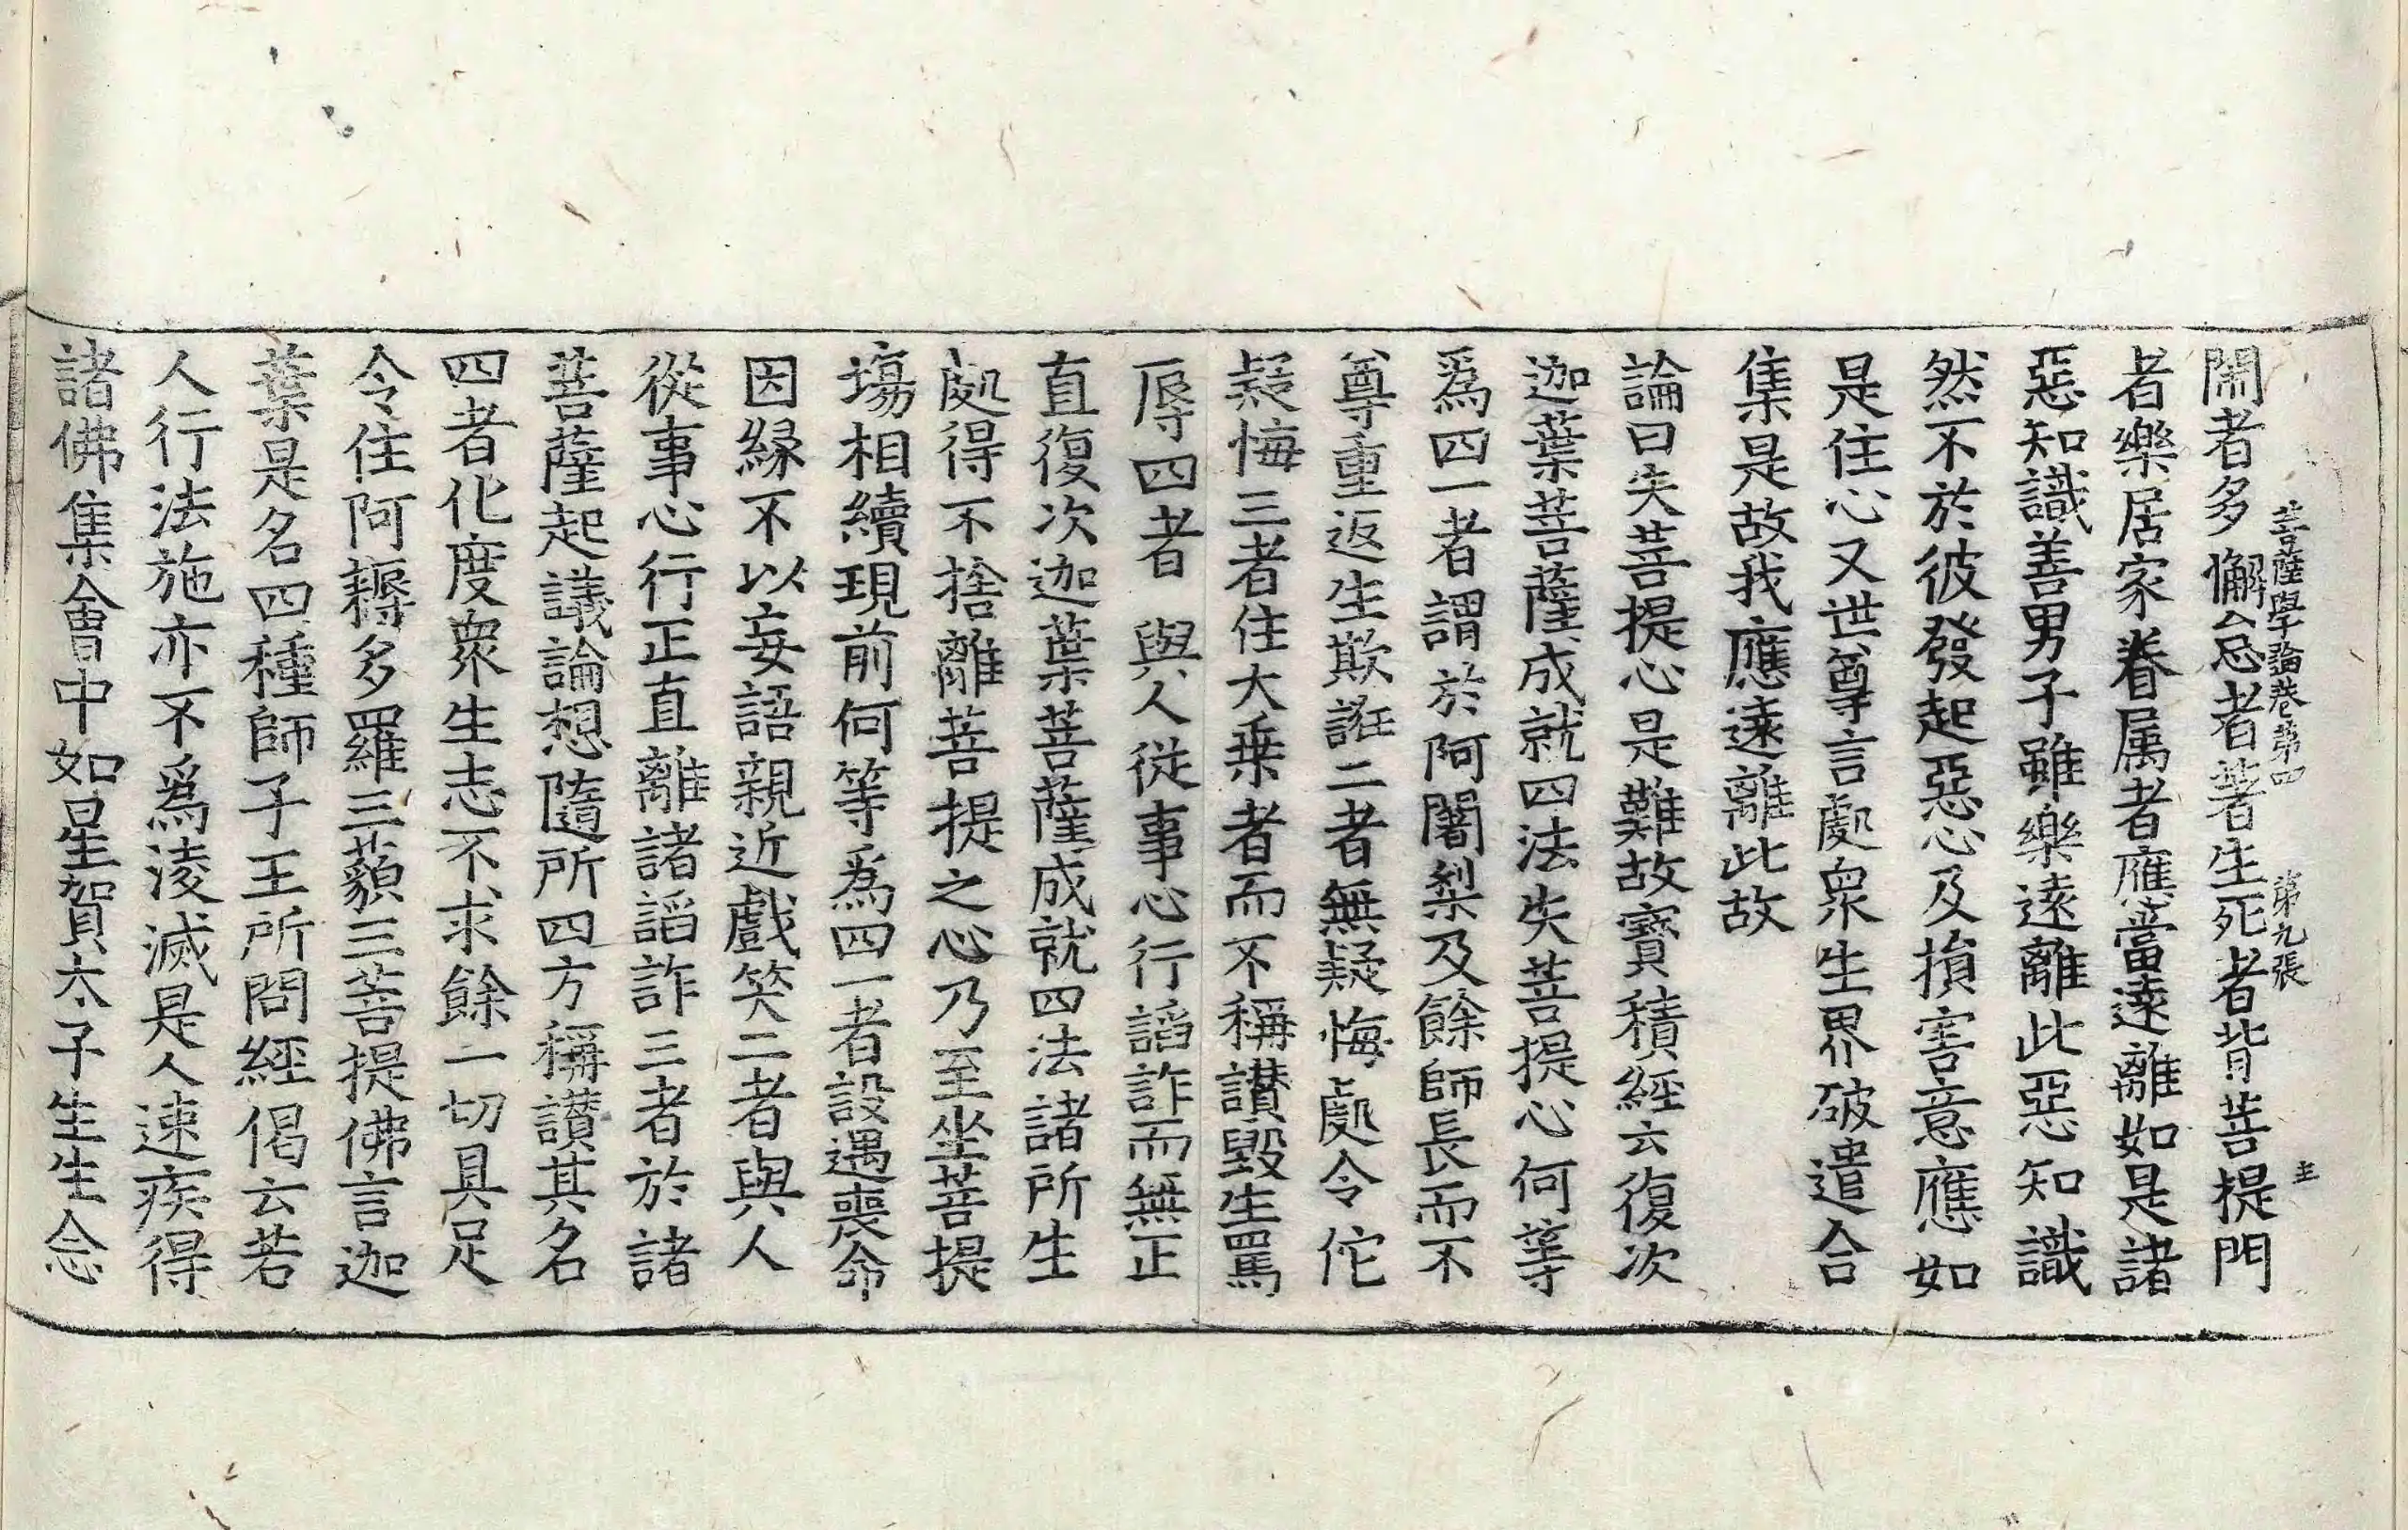 菩薩學論卷第四　第九張　主
閙者多懈怠者著生死者背菩提門
者樂居家眷属者應當遠離如是諸
惡知識善男子雖樂遠離此惡知識
然不於彼發起惡心及損害意應如
是住心又世尊言處衆生界破遣合
集是故我應遠離此故
論曰失菩提心是難故寶積經云復次
迦葉菩薩成就四法失菩提心何等
爲四一者謂於阿闍梨及餘師長而不
尊重返生欺誑二者無疑悔處令佗
疑悔三者住大乗者而不稱讃毀生罵
辱四者與人從事心行謟詐而無正
直復次迦葉菩薩成就四法諸所生
處得不捨離菩提之心乃至坐菩提
場相續現前何等爲四一者設遇喪命
因緣不以妄語親近戲笑二者與人
從事心行正直離諸謟詐三者於諸
菩薩起議論想隨所四方稱讃其名
四者化度衆生志不求餘一切具足
令住阿耨多羅三藐三菩提佛言迦
葉是名四種師子王所問經偈云若
人行法施亦不爲淩滅是人速疾得
諸佛集會中如星賀太子生生念